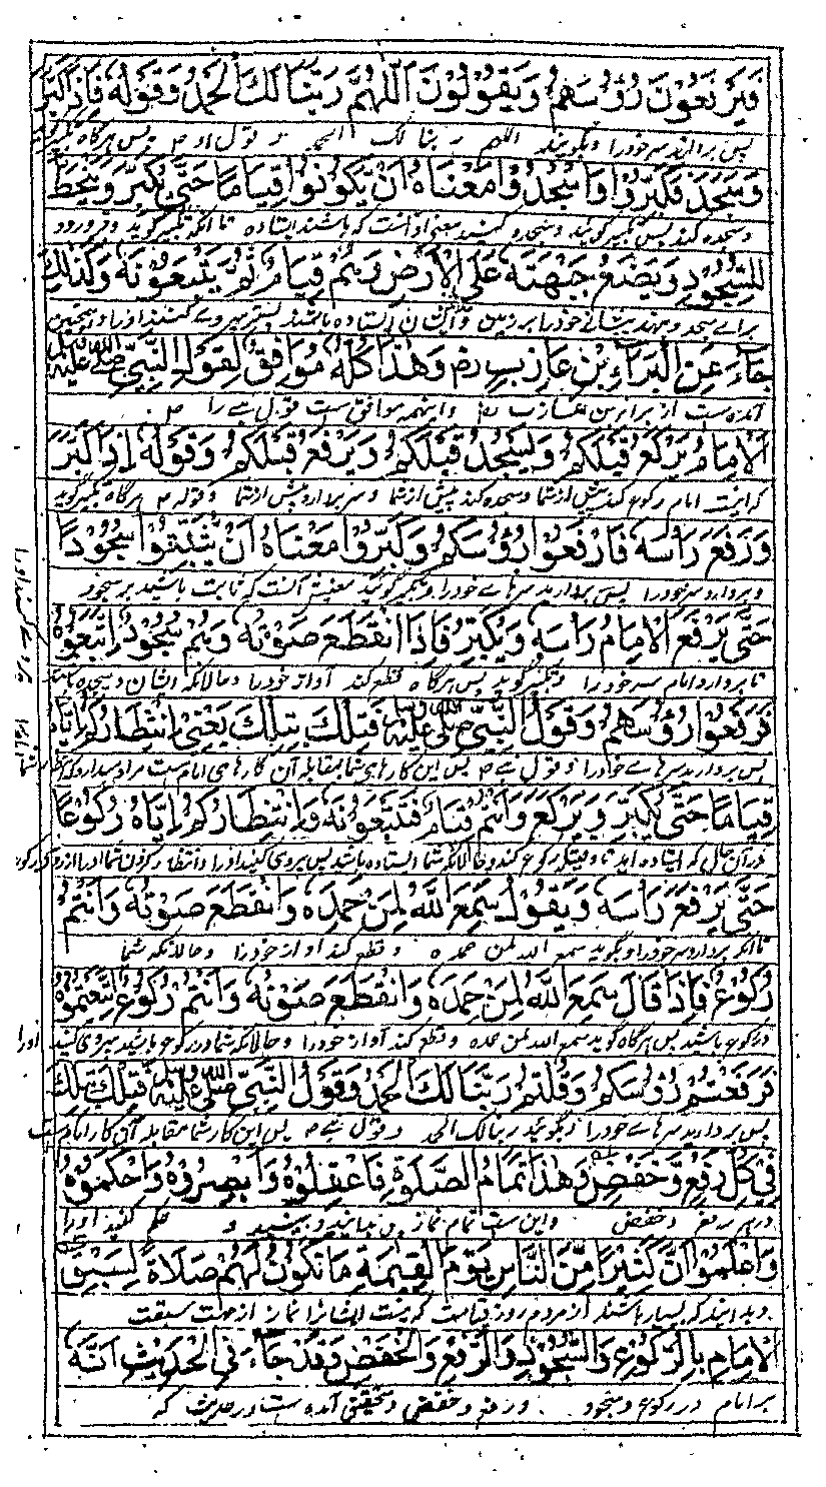 فَيَرْفَعُونَ رُؤُسَهُمْ وَيَقُولُونَ اَللّٰهُمَّ رَبَّنَا لَكَ الْحَمْدُ وَقَوْلُهُ فَاِذَا كَبَّرَ
پس بردارند سر خود را و بگویند اللهم ربنا لک الحمد و قول او ص پس هرگاه تکبیر گوید
وَسَجَدَ فَكَبِّرُوْا وَاسْجُدُوْا مَعْنَاهُ اَنْ يَّكُوْنُوْا قِيَامًا حَتّٰى يُكَبِّرَ وَيَنْحَطَّ
و سجده کند پس تکبیر گوئید و سجده کنید معنی او آنست که باشند ایستاده تا آنکه تکبیر گوید و فرو رود
لِلسُّجُوْدِ وَيَضَعُ جَبْهَتَهُ عَلَى الْاَرْضِ وَهُمْ قِيَامٌ ثُمَّ يَتَّبِعُوْنَهُ وَكَذٰلِكَ
برای سجده و بنهد پیشانی خود را بر زمین و ایشان ایستاده باشند پستر پیروی کنند او را و همچنین
جَاءَ عَنِ الْبَرَاءِ بْنِ عَازِبٍ رض وَهٰذَا كُلُّهُ مُوَافِقٌ لِقَوْلِ النَّبِيِّ صَلَّى اللّٰهُ عَلَيْهِ وَسَلَّمَ
آمده است از براء بن عازب رض و اینهمه موافق است قول نبی را ص
اَلْاِمَامُ يَرْكَعُ قَبْلَكُمْ وَيَسْجُدُ قَبْلَكُمْ وَيَرْفَعُ قَبْلَكُمْ وَقَوْلُهُ اِذَا كَبَّرَ
که اینست امام رکوع کند پیش از شما و سجده کند پیش از شما و سر بردارد پیش از شما و قوله ص هرگاه تکبیر گوید
وَرَفَعَ رَأْسَهُ فَارْفَعُوْا رُؤُسَكُمْ وَكَبِّرُوْا مَعْنَاهُ اَنْ يَّثْبُتُوْا سُجُوْدًا
و بردارد سر خود را پس بردارید سرهای خود را و تکبیر گوئید معنیش آنست که ثابت باشید بر سجود
حَتّٰى يَرْفَعَ الْاِمَامُ رَأْسَهُ وَيُكَبِّرُ فَاِذَا انْقَطَعَ صَوْتُهُ وَهُمْ سُجُوْدٌ اِتَّبَعُوْهُ
تا بردارد امام سر خود را و تکبیر گوید پس هرگاه قطع کند آواز خود را و حالانکه ایشان در سجده باشند
فَرَفَعُوْا رُؤُسَهُمْ وَقَوْلُ النَّبِيِّ صَلَّى اللّٰهُ عَلَيْهِ وَسَلَّمَ فَتِلْكَ بِتِلْكَ يَعْنِيْ اِنْتِظَارُكُمْ اِيَّاهُ
پس بردارید سرهای خود را و قول نبی ص پس این کارهای شما بمقابله آن کارهای امام است مراد میدارد که
قِيَامًا حَتّٰى يُكَبِّرَ وَيَرْكَعَ وَاَنْتُمْ قِيَامٌ فَتَتَّبِعُوْنَهُ وَاِنْتِظَارُكُمْ اِيَّاهُ رُكُوْعًا
در آن حالی که ایستاده اید تا وقتیکه رکوع کند و حالانکه شما ایستاده باشید پس پیروی کنید او را و انتظار کردن شما او را در رکوع
حَتّٰى يَرْفَعَ رَأْسَهُ وَيَقُوْلُ سَمِعَ اللّٰهُ لِمَنْ حَمِدَهُ وَانْقَطَعَ صَوْتُهُ وَاَنْتُمْ
تا آنکه بردارد سر خود را و بگوید سمع الله لمن حمده و قطع کند آواز خود را و حالانکه شما
رُكُوْعٌ فَاِذَا قَالَ سَمِعَ اللّٰهُ لِمَنْ حَمِدَهُ وَانْقَطَعَ صَوْتُهُ وَاَنْتُمْ رُكُوْعٌ اِتَّبَعْتُمُوْهُ
در رکوع باشید پس هرگاه گوید سمع الله لمن حمده و قطع کند آواز خود را و حالانکه شما در رکوع باشید پیروی کنید او را
فَرَفَعْتُمْ رُؤُسَكُمْ وَقُلْتُمْ رَبَّنَا لَكَ الْحَمْدُ وَقَوْلُ النَّبِيِّ صَلَّى اللّٰهُ عَلَيْهِ وَسَلَّمَ فَتِلْكَ بِتِلْكَ
پس بردارید سرهای خود را و بگوئید ربنا لک الحمد و قول نبی ص پس این کار شما مقابله آن کار امام است
فِيْ كُلِّ رَفْعٍ وَّخَفْضٍ وَهٰذَا تَمَامُ الصَّلٰوةِ فَاعْقِلُوْهُ وَاَبْصِرُوْهُ وَاَحْكِمُوْهُ
در هر رفع و خفض و این است تمام نماز پس بدانید و ببینید و حکم کنید او را
وَاعْلَمُوْا اَنَّ كَثِيْرًا مِّنَ النَّاسِ يَوْمَ الْقِيٰمَةِ مَا تَكُوْنُ لَهُمْ صَلَاةٌ لِسَبْقِ
و بدانید که بسیار باشند از مردم روز قیامت که نیست ایشانرا نماز از جهت سبقت
الْاِمَامِ بِالرُّكُوْعِ وَالسُّجُوْدِ وَالرَّفْعِ وَالْخَفْضِ وَقَدْ جَاءَ فِي الْحَدِيْثِ اَنَّهُ
بر امام در رکوع و سجود و رفع و خفض و تحقیق آمده است در حدیث که